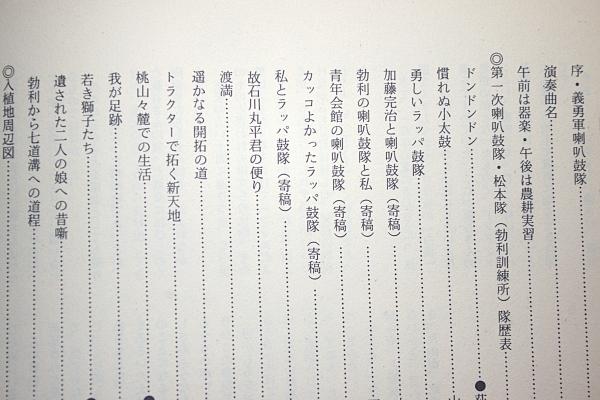 序・義勇軍喇叭鼓隊
演奏曲名
午前は器楽・午後は農耕実習
◎第一次喇叭鼓隊・松本隊（勃利訓練所）隊歴表
ドンドンドン
慣れぬ小太鼓
勇しいラッパ鼓隊
加藤完治と喇叭鼓隊（寄稿）
勃利の喇叭鼓隊と私（寄稿）
青年会館の喇叭鼓隊（寄稿）
カッコよかったラッパ鼓隊（寄稿）
私とラッパ鼓隊（寄稿）
故石川丸平君の便り
渡満
遥かなる開拓の道
トラクターで拓く新天地
桃山々麓での生活
我が足跡
若き獅子たち
遺された二人の娘への昔噺
勃利から七道溝への道程
◎入植地周辺図